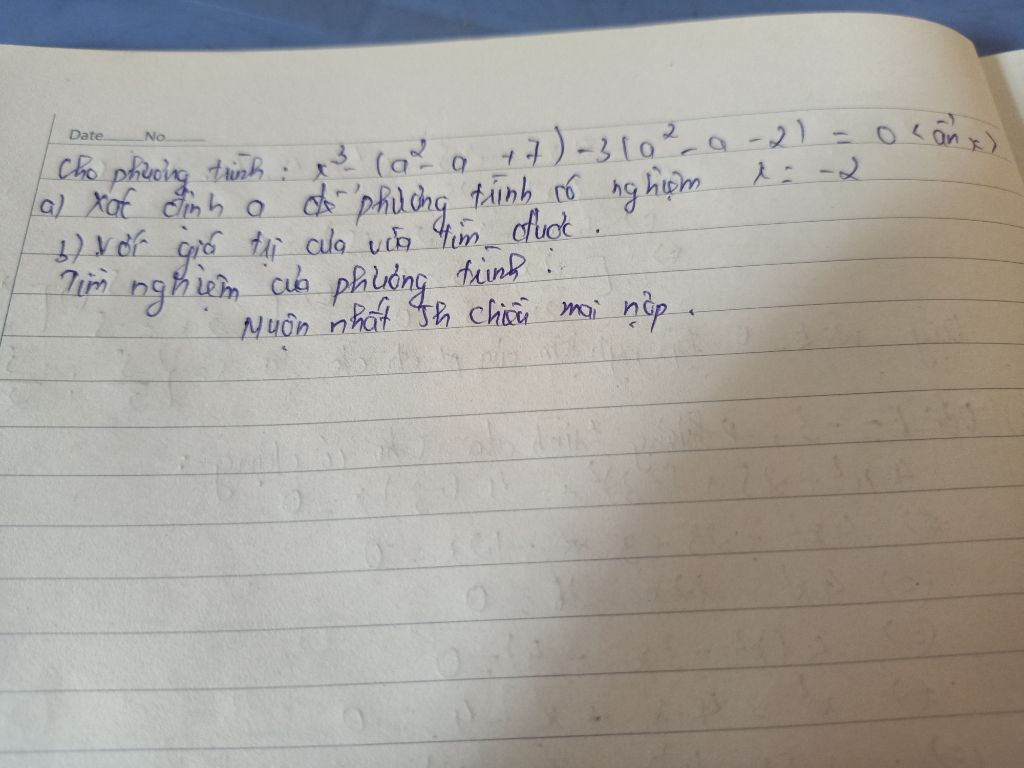 Date No
Cho phương trình : x³ - (a² - a + 7) - 3(a² - a - 2) = 0 (ẩn x)
a) Xác định a để phương trình có nghiệm x = -2
b) Với giá trị của vừa tìm được.
Tìm nghiệm của phương trình.
Muộn nhất 5h chiều mai nộp.